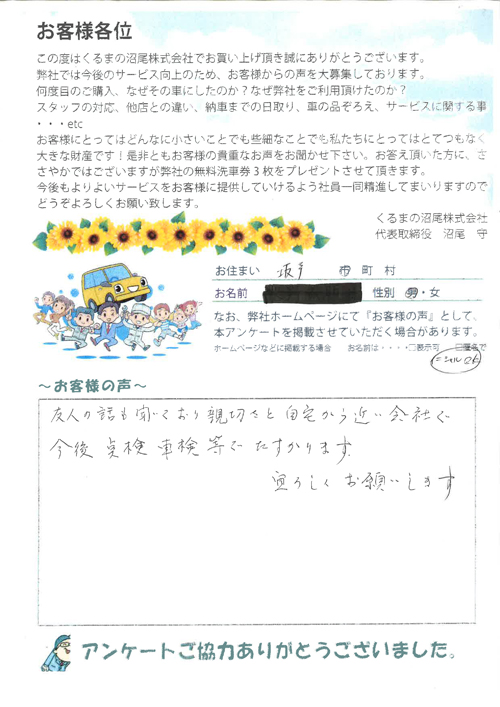 お客様各位
この度はくるまの沼尾株式会社でお買い上げ頂き誠にありがとうございます。
弊社では今後のサービス向上のため、お客様からの声を大募集しております。
何度目のご購入、なぜその車にしたのか?なぜ弊社をご利用頂けたのか?
スタッフの対応、他店との違い、納車までの日取り、車の品ぞろえ、サービスに関する事
・・・etc
お客様にとってはどんなに小さいことでも些細なことでも私たちにとってはとてつもなく
大きな財産です!是非ともお客様の貴重なお声をお聞かせ下さい。お答え頂いた方に、さ
さやかではございますが弊社の無料洗車券3枚をプレゼントさせて頂きます。
今後もよりよいサービスをお客様に提供していけるよう社員一同精進してまいりますので
どうぞよろしくお願い致します。
くるまの沼尾株式会社
代表取締役 沼尾 守
お住まい 坂戸 市 町 村
お名前 性別 男・女
なお、弊社ホームページにて『お客様の声』として、
本アンケートを掲載させていただく場合があります。
ホームページなどに掲載する場合 お名前は・・・・□表示可 □匿名で
イニシャルOK
～お客様の声～
友人の話も聞いており親切さと自宅から近い会社で
今後 点検 車検 等で たすかります
宜ろしく お願いします
アンケートご協力ありがとうございました。